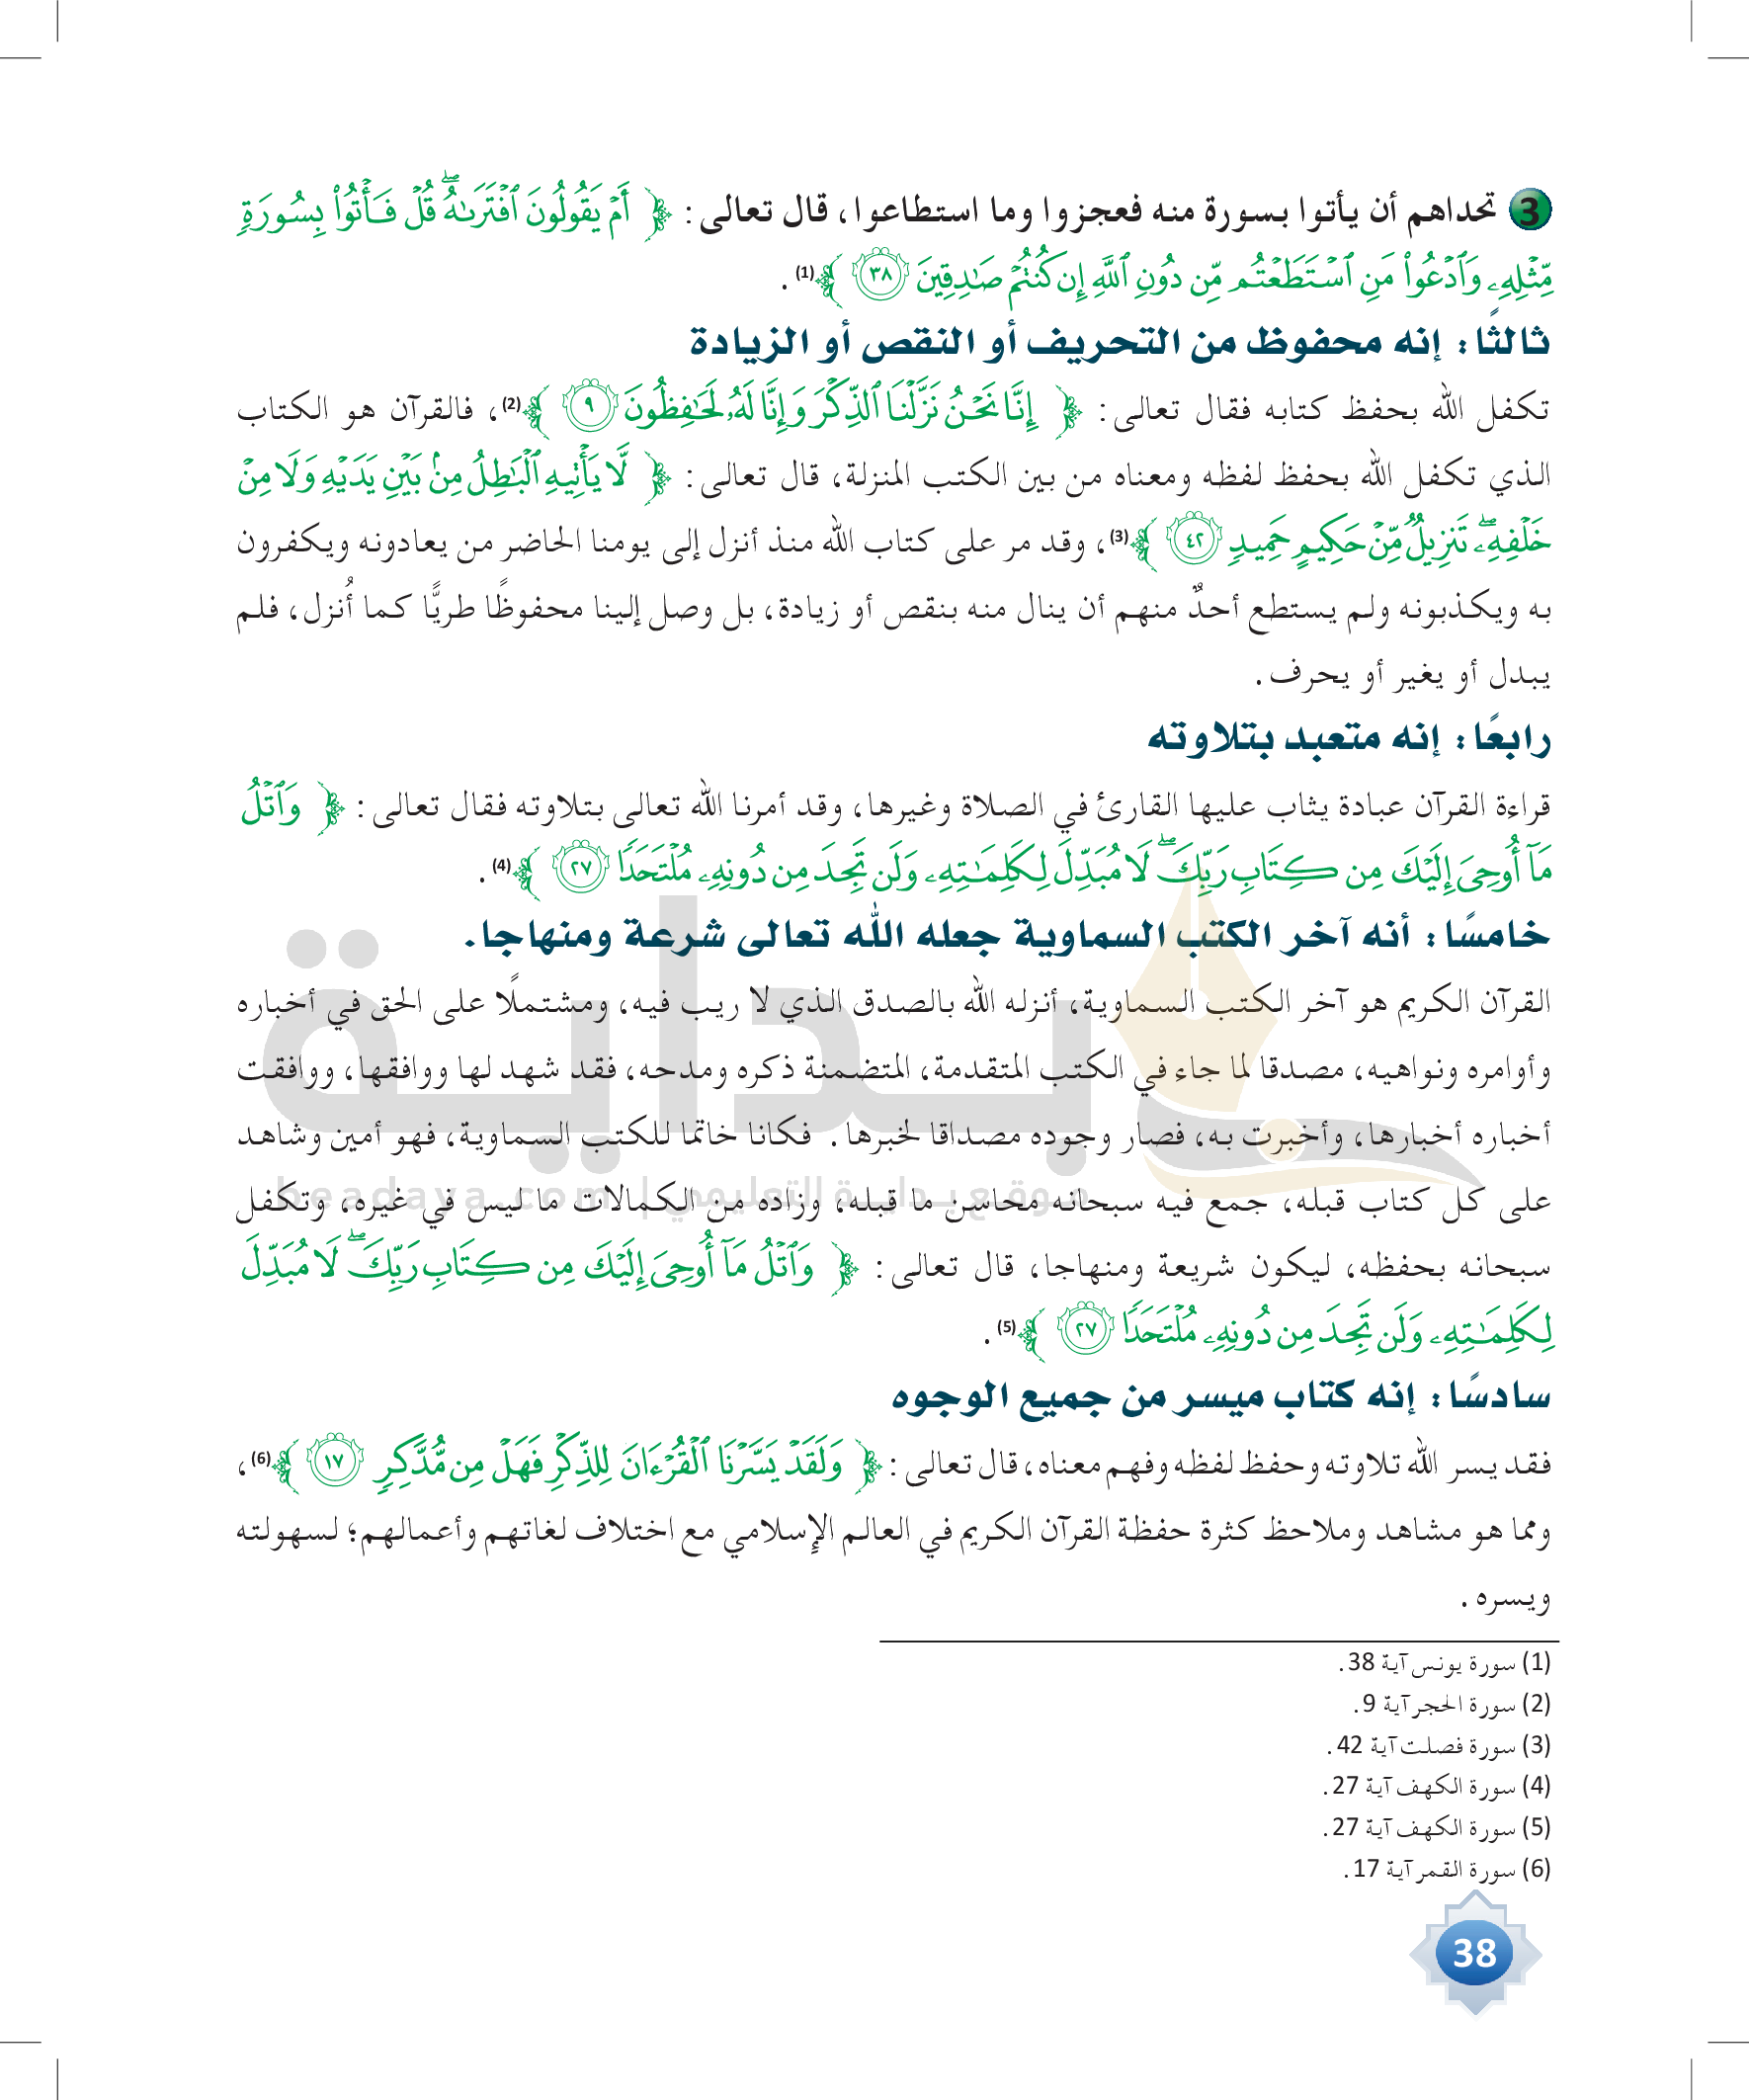 3 تحداهم أن يأتوا بسورة منه فعجزوا وما استطاعوا، قال تعالى: ﴿ أَمْ يَقُولُونَ ٱفْتَرَىٰهُ ۖ قُلْ فَأْتُوا۟ بِسُورَةٍ
مِّثْلِهِۦ وَٱدْعُوا۟ مَنِ ٱسْتَطَعْتُم مِّن دُونِ ٱللَّهِ إِن كُنتُمْ صَٰدِقِينَ ٣٨ ﴾(1).
ثالثًا: إنه محفوظ من التحريف أو النقص أو الزيادة
تكفل الله بحفظ كتابه فقال تعالى: ﴿ إِنَّا نَحْنُ نَزَّلْنَا ٱلذِّكْرَ وَإِنَّا لَهُۥ لَحَٰفِظُونَ ٩ ﴾(2)، فالقرآن هو الكتاب
الذي تكفل الله بحفظ لفظه ومعناه من بين الكتب المنزلة، قال تعالى: ﴿ لَّا يَأْتِيهِ ٱلْبَٰطِلُ مِنۢ بَيْنِ يَدَيْهِ وَلَا مِنْ
خَلْفِهِۦ ۖ تَنزِيلٌ مِّنْ حَكِيمٍ حَمِيدٍ ٤٢ ﴾(3)، وقد مر على كتاب الله منذ أنزل إلى يومنا الحاضر من يعادونه ويكفرون
به ويكذبونه ولم يستطع أحدٌ منهم أن ينال منه بنقص أو زيادة، بل وصل إلينا محفوظًا طريًّا كما أُنزل، فلم
يبدل أو يغير أو يحرف.
رابعًا: إنه متعبد بتلاوته
قراءة القرآن عبادة يثاب عليها القارئ في الصلاة وغيرها، وقد أمرنا الله تعالى بتلاوته فقال تعالى: ﴿ وَٱتْلُ
مَآ أُوحِىَ إِلَيْكَ مِن كِتَابِ رَبِّكَ ۖ لَا مُبَدِّلَ لِكَلِمَٰتِهِۦ وَلَن تَجِدَ مِن دُونِهِۦ مُلْتَحَدًا ٢٧ ﴾(4).
خامسًا: أنه آخر الكتب السماوية جعله الله تعالى شرعة ومنهاجا.
القرآن الكريم هو آخر الكتب السماوية، أنزله الله بالصدق الذي لا ريب فيه، ومشتملًا على الحق في أخباره
وأوامره ونواهيه، مصدقا لما جاء في الكتب المتقدمة، المتضمنة ذكره ومدحه، فقد شهد لها ووافقها، ووافقت
أخباره أخبارها، وأخبرت به، فصار وجوده مصداقا لخبرها. فكانا خاتما للكتب السماوية، فهو أمين وشاهد
على كل كتاب قبله، جمع فيه سبحانه محاسن ما قبله، وزاده من الكمالات ما ليس في غيره، وتكفل
سبحانه بحفظه، ليكون شريعة ومنهاجا، قال تعالى: ﴿ وَٱتْلُ مَآ أُوحِىَ إِلَيْكَ مِن كِتَابِ رَبِّكَ ۖ لَا مُبَدِّلَ
لِكَلِمَٰتِهِۦ وَلَن تَجِدَ مِن دُونِهِۦ مُلْتَحَدًا ٢٧ ﴾(5).
سادسًا: إنه كتاب ميسر من جميع الوجوه
فقد يسر الله تلاوته وحفظ لفظه وفهم معناه، قال تعالى: ﴿ وَلَقَدْ يَسَّرْنَا ٱلْقُرْءَانَ لِلذِّكْرِ فَهَلْ مِن مُّدَّكِرٍ ١٧ ﴾(6)،
ومما هو مشاهد وملاحظ كثرة حفظة القرآن الكريم في العالم الإسلامي مع اختلاف لغاتهم وأعمالهم؛ لسهولته
ويسره.
(1) سورة يونس آية 38.
(2) سورة الحجر آية 9.
(3) سورة فصلت آية 42.
(4) سورة الكهف آية 27.
(5) سورة الكهف آية 27.
(6) سورة القمر آية 17.
38
بداية
موقع بداية التعليمي | beadaya.com